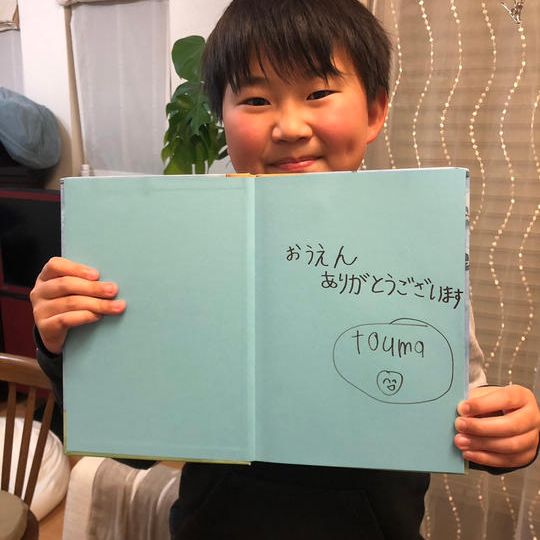 おうえん
ありがとうございます
touma